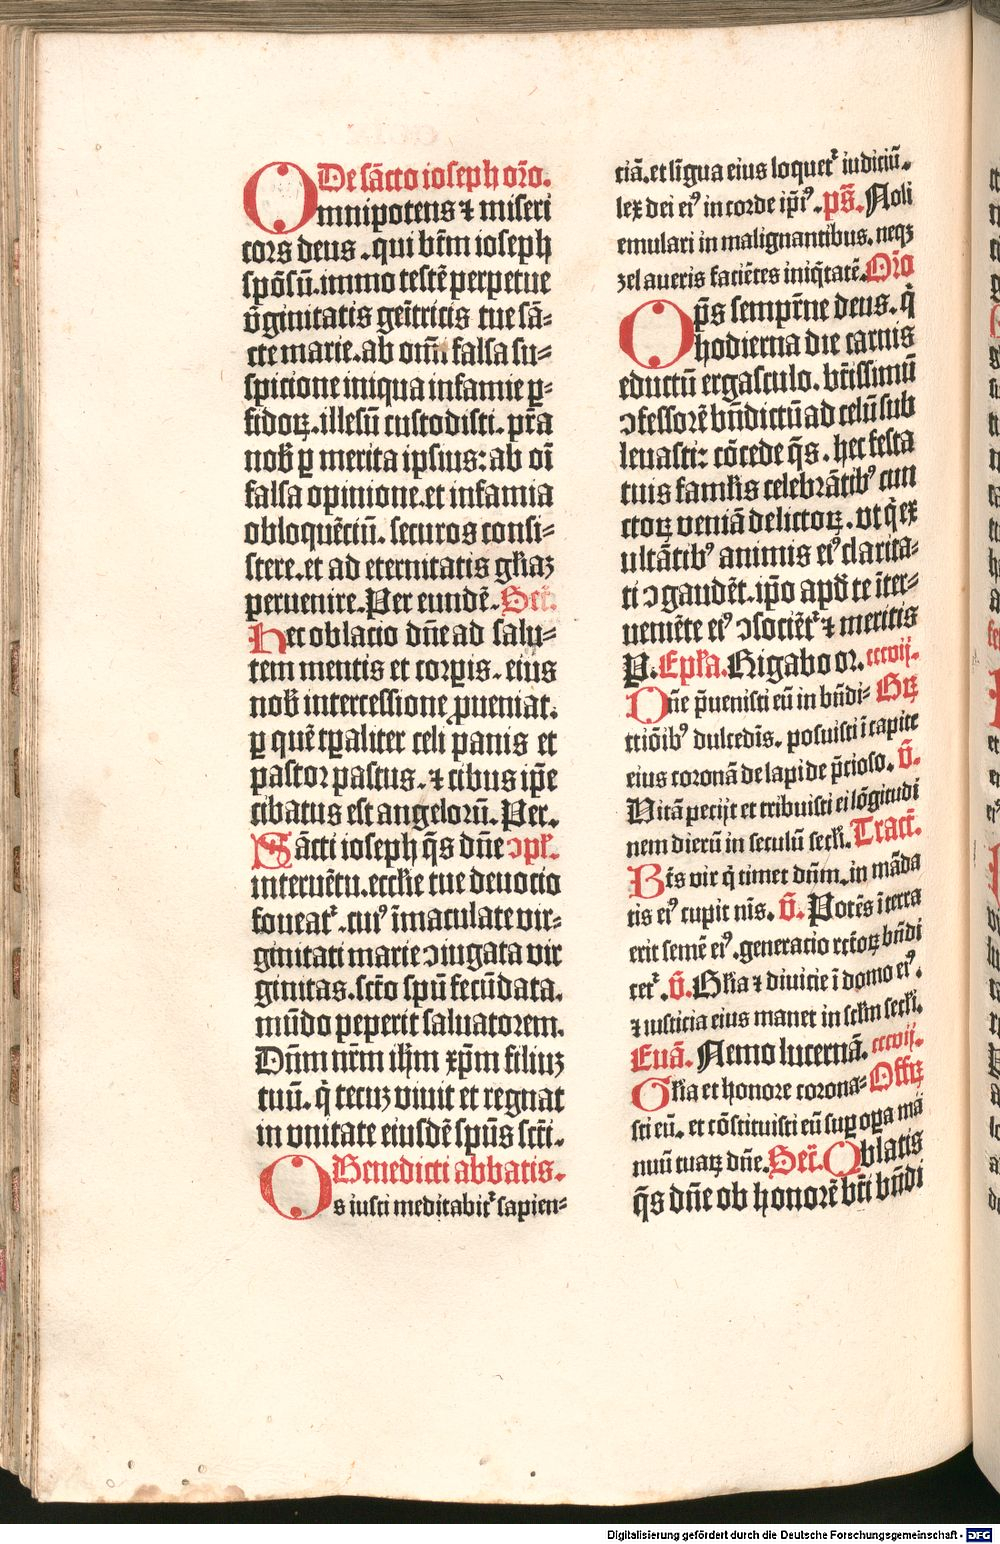 De sācto ioseph or̄o.
Omnipotens ⁊ miseri
cors deus .qui bt̄m ioseph
spōsū.immo testē perpetue
v̄ginitatis geītricis tue sā-
cte marie.ab om̄i falsa su-
spicione iniqua infamie ꝑ-
fidoꝝ.illesū custodisti. pr̄a
nob̄ ꝑ merita ipsius: ab oī
falsa opinione.et infamia
obloquētiū. securos consi-
stere.et ad eternitatis gl̄iaꝫ
peruenire.Per eundē. Secr̄.
Hec oblatio dn̄e ad salu-
tem mentis et corꝑis. eius
nob̄ intercessione ꝓueniat.
ꝑ quē tꝑaliter celi panis et
pastor pastus. ⁊ cibus ip̄e
cibatus est angelorū. Per.
Sācti ioseph q̄s dn̄e ↄpl̄.
interuētu. eccl̄ie tue deuocio
foueatr̉ .cuiꝰ īmaculate vir-
ginitati marie ↄiugata vir
ginitas.sct̄o spū fecūdata.
mūdo peperit saluatorem.
Dn̄m nr̄m ih̄m xp̄m filiuꝫ
tuū. q̇ tecuꝫ viuit et regnat
in vnitate eiusdē spūs sct̄i.
Benedicti abbatis.
Os iusti meditabit̉ sapien-
ciā.et līgua eius loquet̉ iudiciū.
lex dei eiꝰ in corde ip̄iꝰ .ps̄. Noli
emulari in malignantibus. neqꝫ
zelaueris faciētes iniq̇tatē.Or̄o
Op̄s sempit̄ne deus. q̇
hodierna die carnis
eductū ergastulo. bt̄issimū
ↄfessorē bn̄dictū ad celū sub
leuasti: cōcede q̄s. hec festa
tuis famĺis celebrātibꝰ cun
ctoꝝ veniā delictoꝝ. vt q̇ ex
ultātibꝰ animis eiꝰ clarita-
ti ↄgaudēt. ip̄o apd̄ te īter-
ueniēte eiꝰ ↄsociēt̉ ⁊ meritis
P. Epl̄a. Rigabo or. cccvij.
Dn̄e p̄uenisti eū in bn̄di- Gꝝ
ctiōibꝰ dulcedīs. posuisti ī capite
eius coronā de lapide p̄cioso. v̄.
Vitā pecijt et tribuisti ei lōgitudi
nem dierū in seculū secĺi. Tract̄.
Bt̄s vir q̇ timet dn̄m. in māda
tis eiꝰ cupit nīs. v̄. Potēs ī terra
erit semē eiꝰ. generacio rct̄oꝝ bn̄di
cet̉ .v̄. Gl̄ia ⁊ diuicie ī domo eiꝰ.
⁊ iusticia eius manet in scĺm secĺi.
Euā. Nemo lucernā. cccvij.
Gl̄ia et honore corona- Offꝝ
sti eū. et cōstituisti eū suꝑ oꝑa ma
nuū tuaꝝ dn̄e. Secr̄. Oblatis
q̄s dn̄e ob honorē bt̄i bn̄di
Digitalisierung gefördert durch die Deutsche Forschungsgemeinschaft - DFG